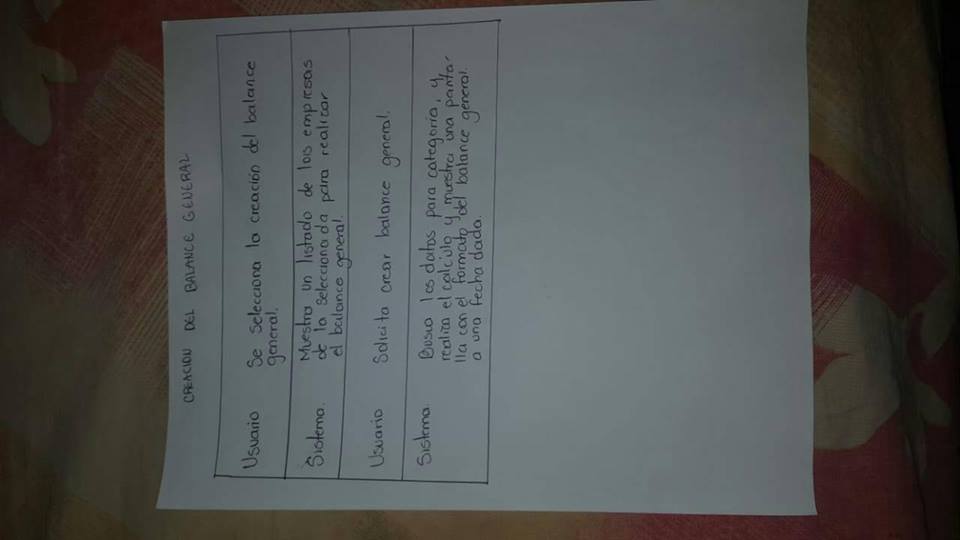 CREACION DEL BALANCE GENERAL
Usuario Se Selecciona la creación del balance
general.
Sistema. Muestra un listado de las empresas
de la Seleccionada para realizar
el balance general.
Usuario Solicita crear balance general.
Sistema. Busca los datos para categoría, y
realiza el calculo y muestra una panta-
lla con el formato del balance general
a una fecha dada.